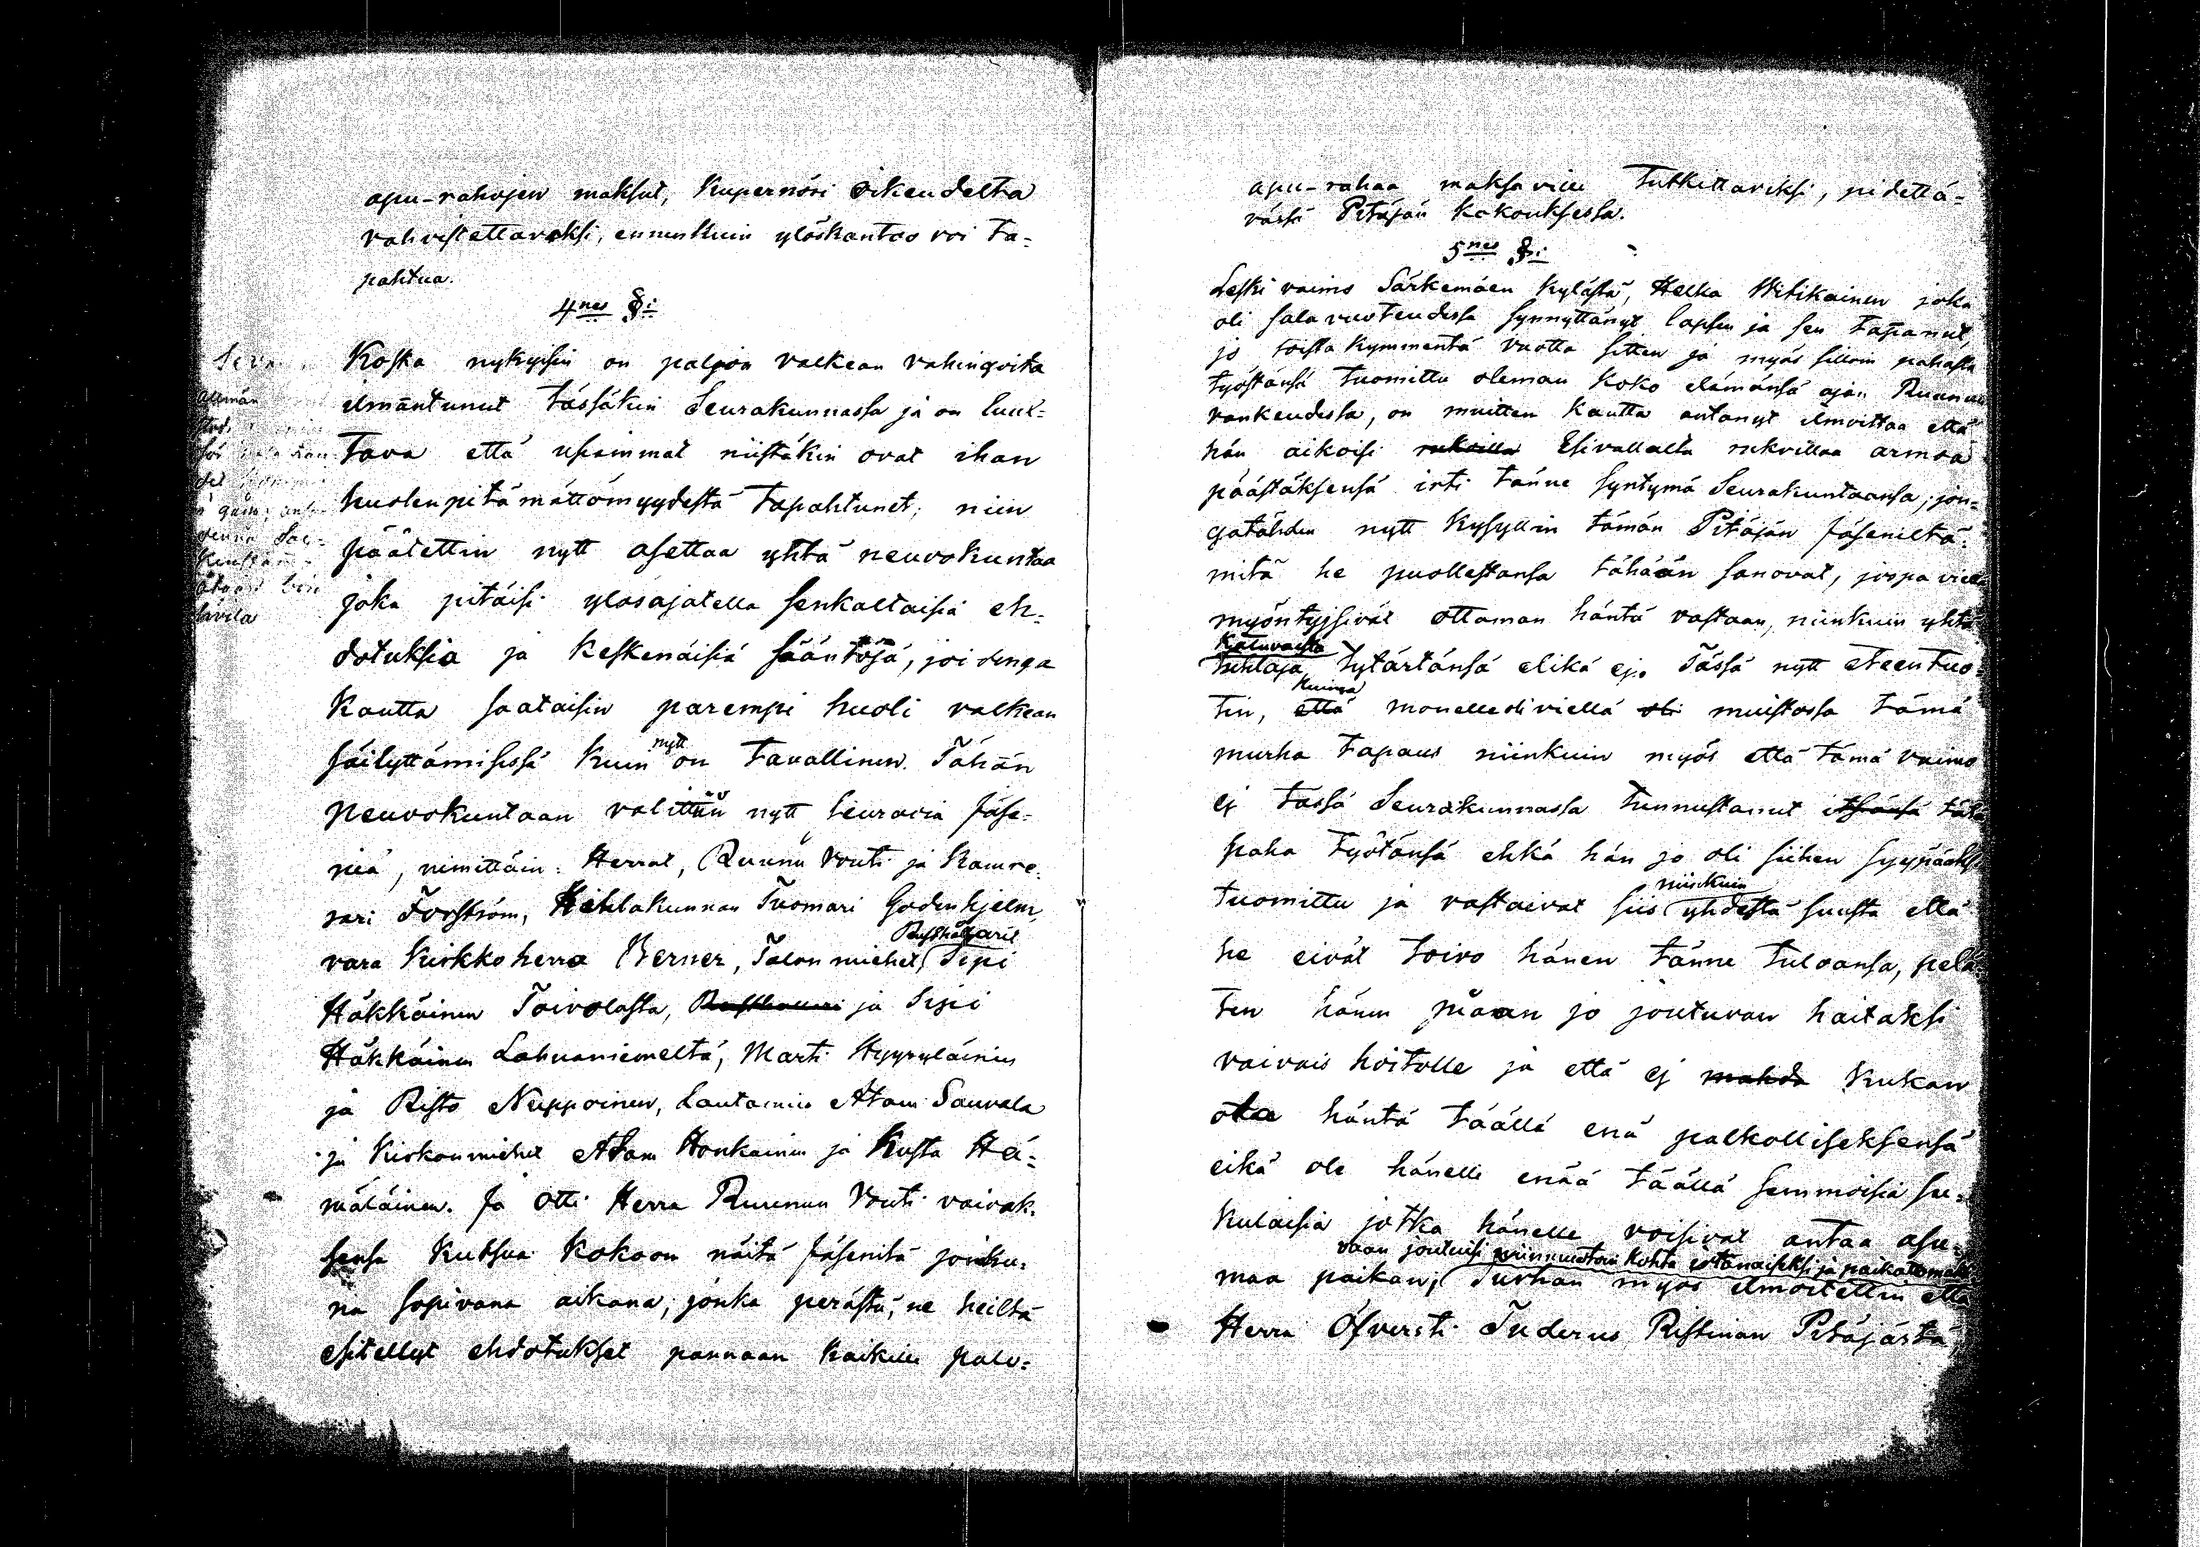 apu-rahojen maksut, Kupernöri oikeudelta
vahvistettavaksi, ennenkuin ylöskantao voi ta-
pahtua.
4nes §:
Koska nykyisin on paljon valkean vahingoita
ilmäntunut tässäkin Seurakunnassa ja on luul-
tava että useimmat niistäkin ovat ihan
huolenpitämättömyydestä tapahtunet, niin
päätettin nytt asettaa yhtä neuvokuntaa
joka pitäisi ylösajatella senkaltaisia eh-
dotuksia ja keskenäisiä sääntöjä, joidenga
kautta saataisin parempi huoli valkean
säilyttämisessä kuin nytt on tavallinen. Tähän
neuvokuntaan valittin nytt seuravia Jäse-
niä, nimittäin: Herrat, Ruunu Vouti ja Kamre-
rari Forsström, Kihlakunnan Tuomari Godenhjelm,
vara Kirkkoherra Berner, Talon miehet, Rusthollarit Sipi
Häkkäinen Toivolasta, Rusthollari ja Sipi
Häkkäinen Lahnaniemeltä, Marti Hyyryläinen
ja Risto Neuppoinen, Lautamies Atam Sauvala
ja Kirkonmiehet Adam Honkainen ja Kusta Hä-
mäläinen. Ja otti Herra Ruunun Vouti vaivak-
sensa kutsua kokoon näitä Jäsenitä jonku-
na sopivana aikana, jonka perästä, ne heiltä
esitellyt ehdotukset pannaan kaikille palo-
Allmän
apu-rahaa maksaville tutkittaviksi, pidettä-
vässä Pitäjän kokouksessa.
5nes §:
Leski vaimo Särkemäen kylästä, Helka Hitikainen joka
oli sala vuoteudessa synnyttänyt lapsen ja sen tapanut,
jo toista kymmentä vuotta sitten ja myös silloin pahasta
työstänsä tuomittu oleman koko elämänsä ajan Ruunun
vankeudessa, on muitten kautta antanyt ilmoittaa että
hän aikoisi rukoilla Esivallalta rukoillaa armoa
päästäksensä irti tänne syntymä Seurakuntaansa, jon-
gatähden nytt kysyttin tämän Pitäjän Jäseniltä
mitä he puollestansa tähään sanovat, jospa viela
myöntyisivät ottaman häntä vastaan, niinkuin yhtä
katuvaista
tuhlaja tytärtänsä elikä ej. Tässä nytt eteentuo-
tin, että kuinga monelle oli viellä oli muistossa tämä
murha tapaus niinkuin myös että tämä vaimo
ej tässä Seurakunnassa tunnustanut itsänsä tätä
paha työtänsä ehkä hän jo oli siihen syypääksi
tuomittu ja vastaivat siis niinkuin yhdestä suusta että
he eivät toivo hänen tänne tuloansa, pelä-
ten hänen määan jo joutuvan haitaksi
vaivais hoitolle ja että ej mahda kukaan
otaa häntä täällä enä palkolliseksensä
eikä ole hänelle enää täällä semmoisia su-
kulaisia jotka hänelle voisivat antaa asu-
maa paikan; vaan joutuisi kohta irtanaiseksi ja paikattomaksi
Turhan myös ilmoitettin että
Herra Öfversti Tuderus Ristinan Pitäjästä